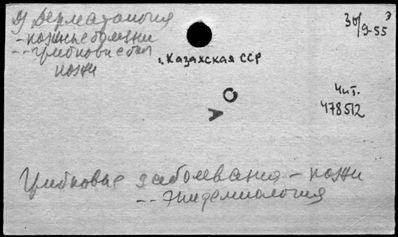 Дерматология
- кожные болезни
-- грибковые бол
кожи
30/9-55
г. Казахская ССР
Чит.
478512
Грибковые заболевания - кожи
-- эпидемиология